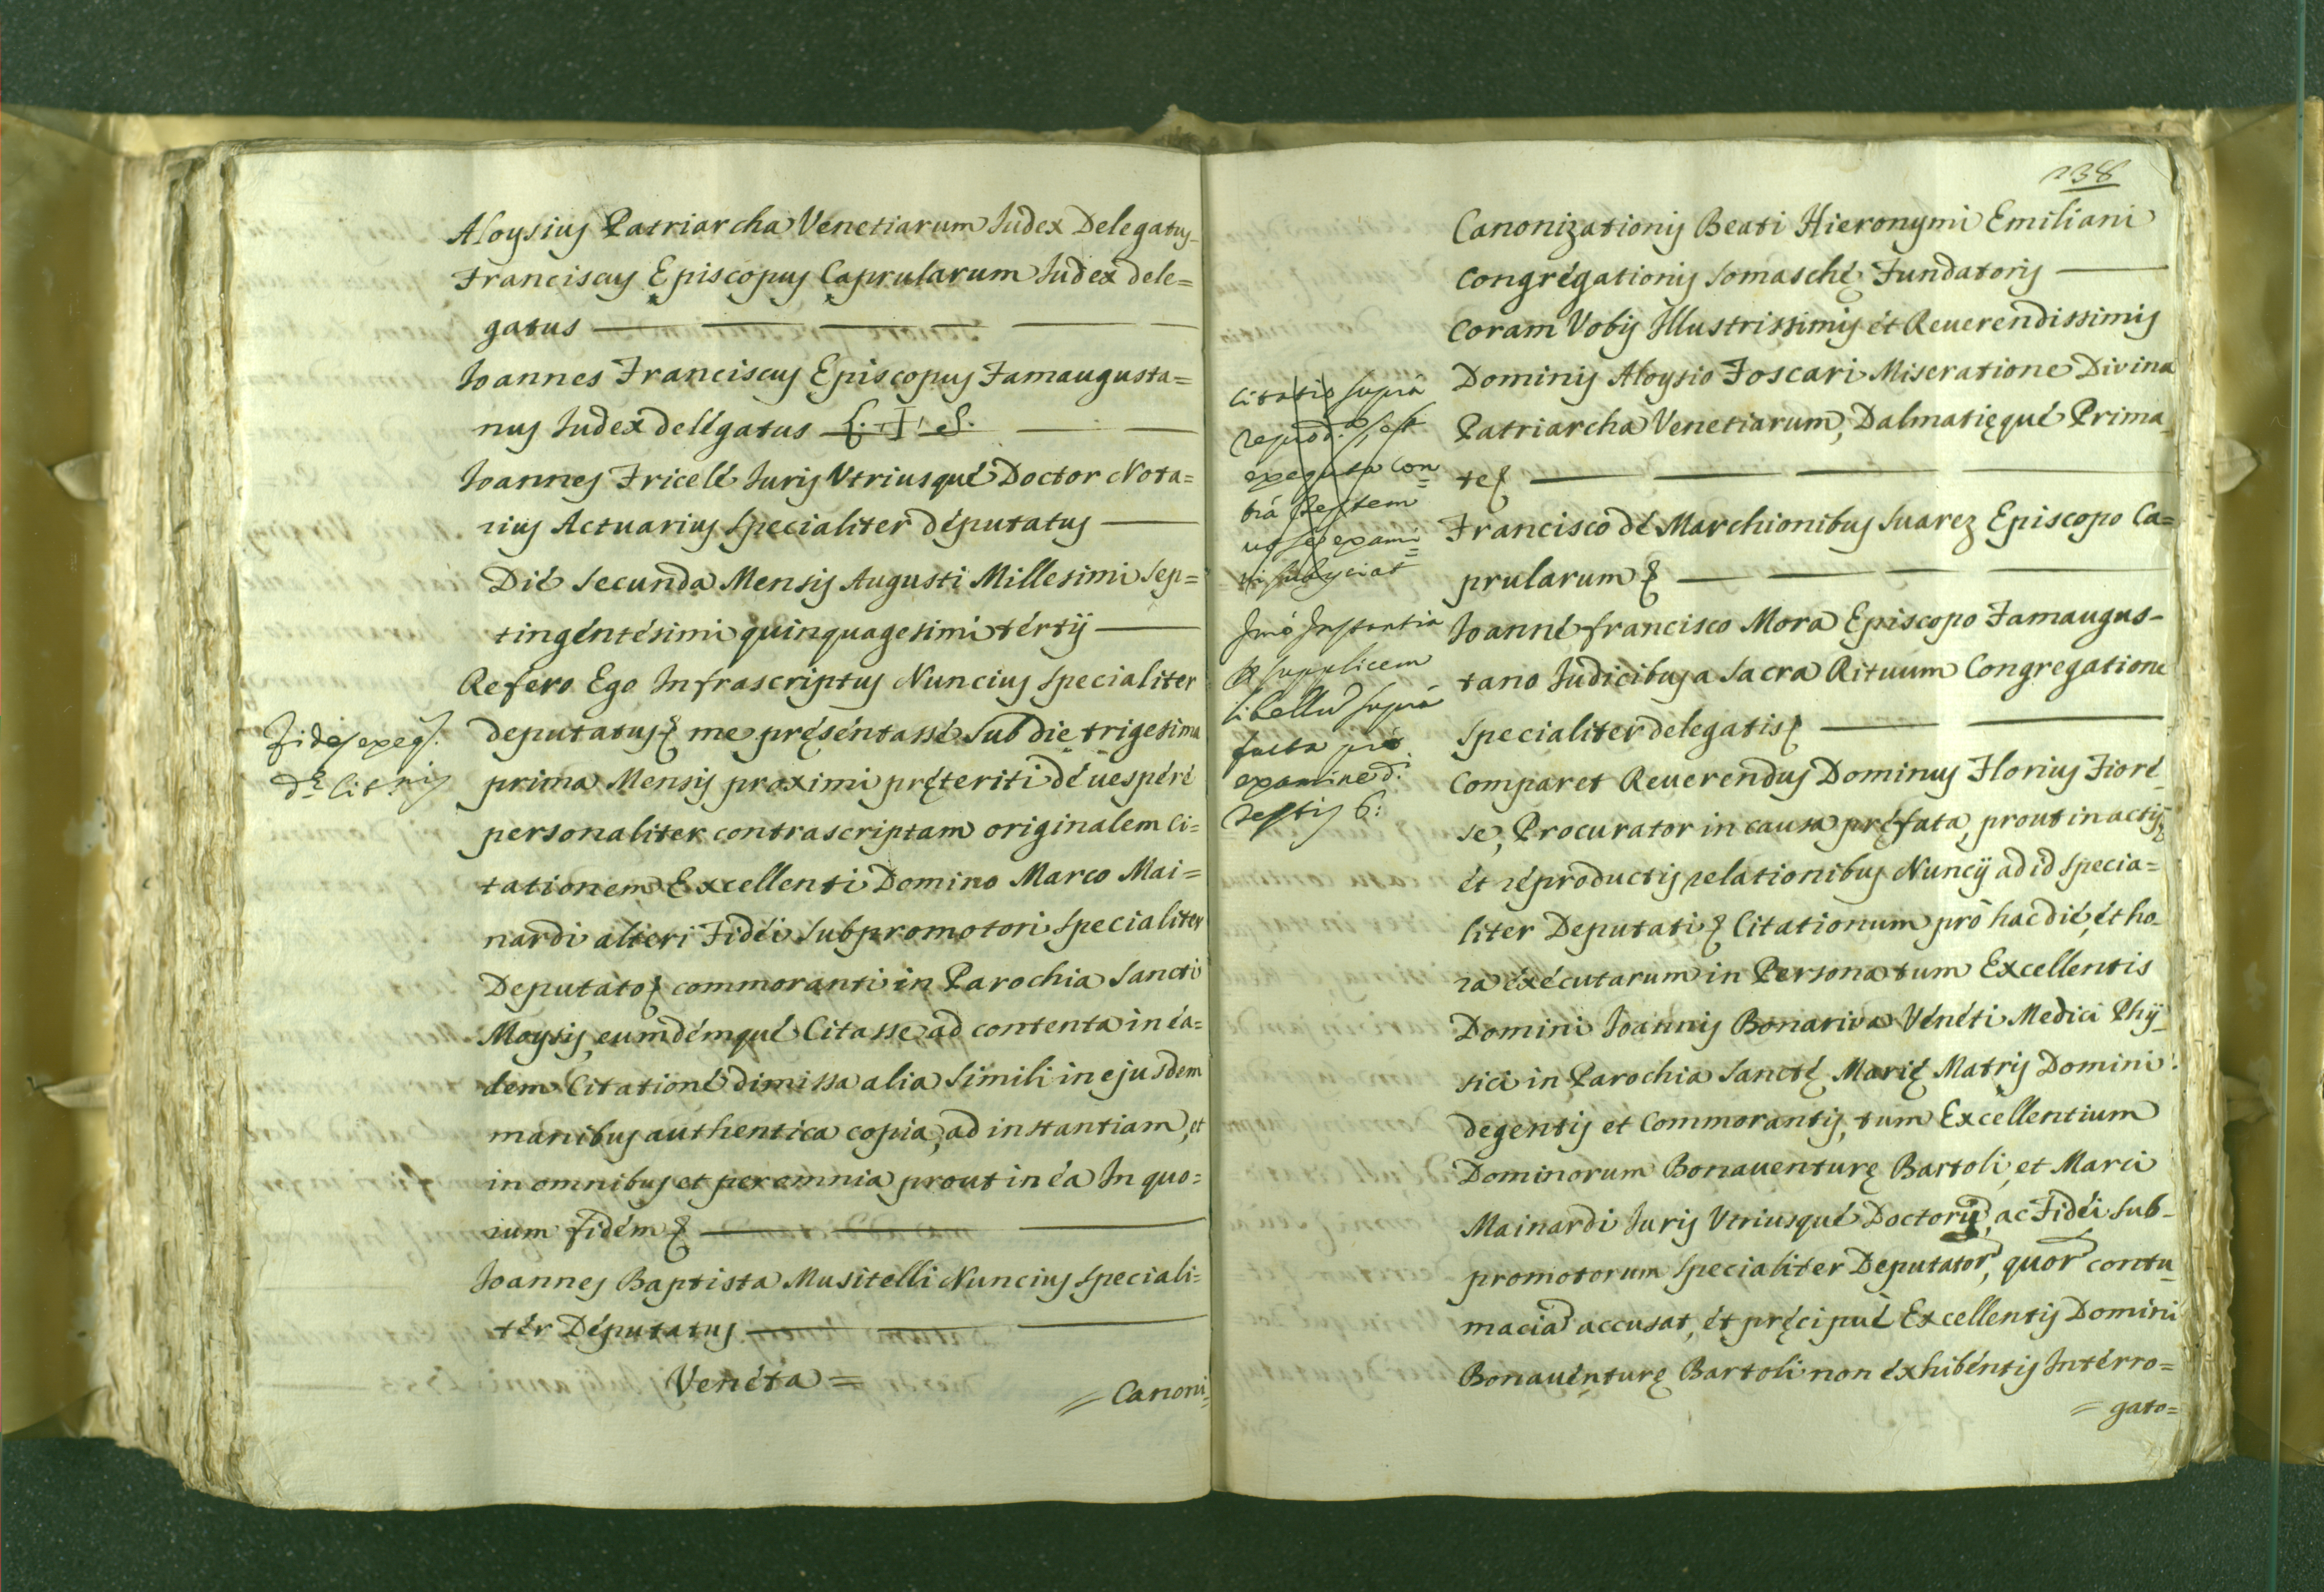 Aloysius Patriarcha Venetiarum Iudex Delegatus
Franciscus Episcopus Caprularum Iudex dele=
gatus
Ioannes Franciscus Episcopus Famaugusta=
nus Iudex delégatus L. I. S.
Ioannes Fricelé Iuris Vtriusqué Doctor Nota=
rius Actuarius specialiter députatus
Dié secunda Mensis Augusti Millesimi sep=
tingéntésimi quinquagesimi tértÿ
Refero Ego Infrascriptus Nuncius specialiter
Fides exeq.
d.ę Cit.nis
deputatus & me pręséntassé sub die trigesima
prima Mensis proximi pręteriti dé uespéré
personaliter contrascriptam originalem Ci=
tationem Excellenti Domino Marco Mai=
nardi alteri Fidéi subpromotori specialiter
Deputato & commoranti in Parochia Sancti
Moysis, eumdémqué Citasse ad contenta in éa=
dem Citationé dimissa alia simili in ejusdem
manibus authentica copia, ad instantiam, et
in omnibus et per omnia prout in éa In quo=
rum fidém &
Ioannes Baptista Musitelli Nuncius speciali=
tér Députatus
Venéta =
= Canoni=
238
Canonizationis Beati Hieronymi Emiliani
Congrégationis Somaschę Fundatoris
Coram Vobis Illustrissimis ét Reuerendissimis
Dominis Aloysio Foscari Miseratione Divina
Patriarcha Venetiarum, Dalmatięqué Prima=
te &
Francisco dé Marchionibus Suarez Episcopo Ca=
prularum &
Ioanné francisco Mora Episcopo Famaugus-
tano Iudicibus a Sacra Rituum Congregatione
specialiter delegatis &
Citatio supra
reprod.a est
exequta con=
tra testem
ut se exami=
ni subyciat
Imò Instantia
& supplicem
libellũ supra
facta prò
examine d.
testis 6:
Comparet Reuerendus Dominus Florius Fioré=
se, Procurator in causa pręfata, prout in actis,
ét réproductis relationibus Nuncÿ ad id specia=
liter Deputati & Citationum prò hac dié, ét ho=
ra éxécutarum in Persona tum Excellentis
Domini Ioannis Bonariva Vénéti Medici Phÿ=
sici in Parochia Sanctę Marię Matris Domini
degentis et Commorantis, tum Excellentium
Dominorum Bonauenturę Bartoli, et Marci
Mainardi Iuris Vtriusqué Doctorũ, ac Fidéi sub-
promotorum specialiter Deputator̃, quor̃ contu=
maciã accusat, ét pręcipuè Excellentis Domini
Bonauénturę Bartoli non éxhibéntis Intérro=
= gato=